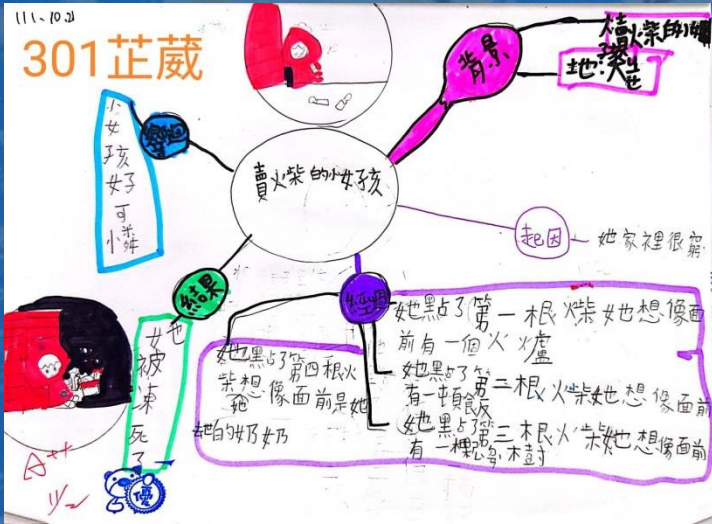 111.10.21
301芷葳
賣火柴的小女孩
背景
賣火柴的小女孩
起因
她家裡很窮
經過
她點了第一根火柴她想像面
前有一個火爐
她點了第二根火柴她想像面前
有一頓飯
她點了第三根火柴她想像面前
有一棵聖樹
她點了第四根火
柴想像面前是她
的奶奶
結果
她被凍死了
小女孩好可憐
A++
11/2
優